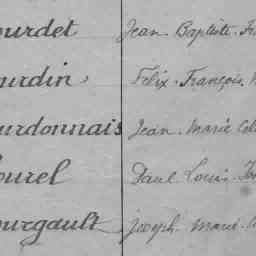 ourdet Jean Baptiste Fr
ourdin Felix François
ourdonnais Jean Marie Cel
ourel Paul Louis
ourgault Joseph Marie